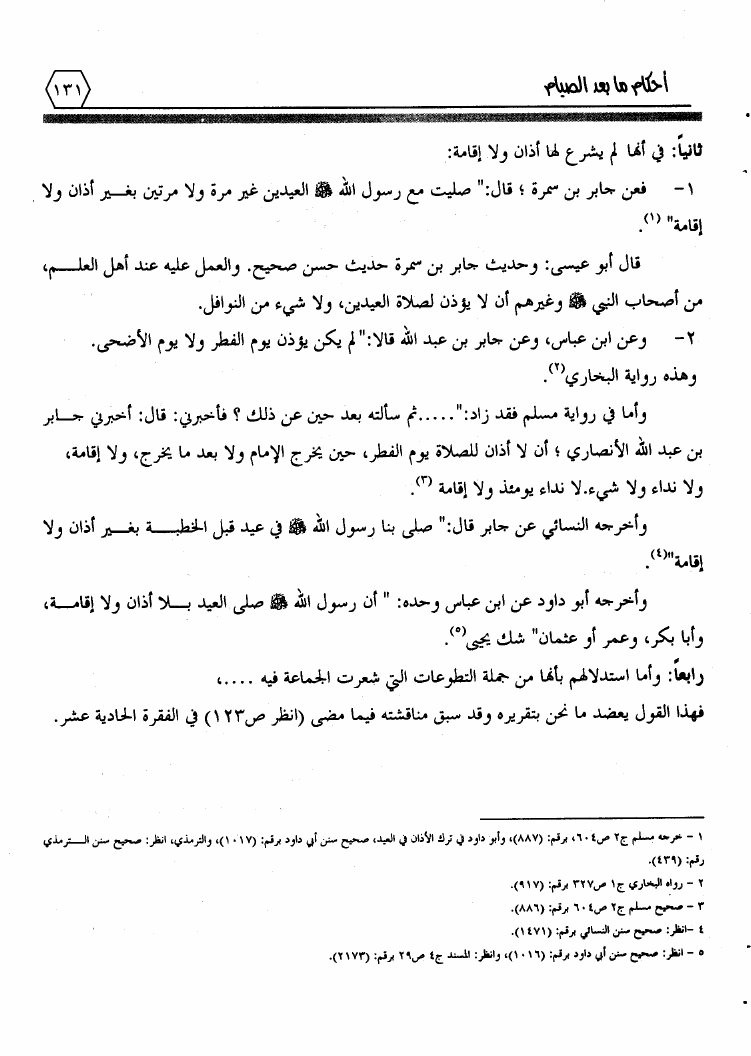 أحكام ما بعد الصيام
١٣١
ثانياً: في أنها لم يشرع لها أذان ولا إقامة:
١- فعن جابر بن سمرة ؛ قال:" صليت مع رسول الله ﷺ العيدين غير مرة ولا مرتين بغير أذان ولا
إقامة" (١).
قال أبو عيسى: وحديث جابر بن سمرة حديث حسن صحيح. والعمل عليه عند أهل العلم،
من أصحاب النبي ﷺ وغيرهم أن لا يؤذن لصلاة العيدين، ولا شيء من النوافل.
٢- وعن ابن عباس، وعن جابر بن عبد الله قالا:" لم يكن يؤذن يوم الفطر ولا يوم الأضحى.
وهذه رواية البخاري(٢).
وأما في رواية مسلم فقد زاد:".....ثم سألته بعد حين عن ذلك ؟ فأخبرني: قال: أخبرني جابر
بن عبد الله الأنصاري ؛ أن لا أذان للصلاة يوم الفطر، حين يخرج الإمام ولا بعد ما يخرج، ولا إقامة،
ولا نداء ولا شيء.لا نداء يومئذ ولا إقامة (٣).
وأخرجه النسائي عن جابر قال:" صلى بنا رسول الله ﷺ في عيد قبل الخطبة بغير أذان ولا
إقامة"(٤).
وأخرجه أبو داود عن ابن عباس وحده: " أن رسول الله ﷺ صلى العيد بلا أذان ولا إقامة،
وأبا بكر، وعمر أو عثمان" شك يحيى(٥).
رابعاً: وأما استدلالهم بأنها من جملة التطوعات التي شعرت الجماعة فيه ....،
فهذا القول يعضد ما نحن بتقريره وقد سبق مناقشته فيما مضى (انظر ص١٢٣) في الفقرة الحادية عشر.
١ - خرجه مسلم ج٢ ص٦٠٤، برقم: (٨٨٧)، وأبو داود في ترك الأذان في العيد، صحيح سنن أبي داود برقم: (١٠١٧)، والترمذي، انظر: صحيح سنن الترمذي
رقم: (٤٣٩).
٢ - رواه البخاري ج١ ص٣٢٧ برقم: (٩١٧).
٣ - صحيح مسلم ج٢ ص٦٠٤ برقم: (٨٨٦).
٤ -انظر: صحيح سنن النسائي برقم: (١٤٧١).
٥ - انظر: صحيح سنن أبي داود برقم: (١٠١٦)، وانظر: المسند ج٤ ص٢٩ برقم: (٢١٧٣).